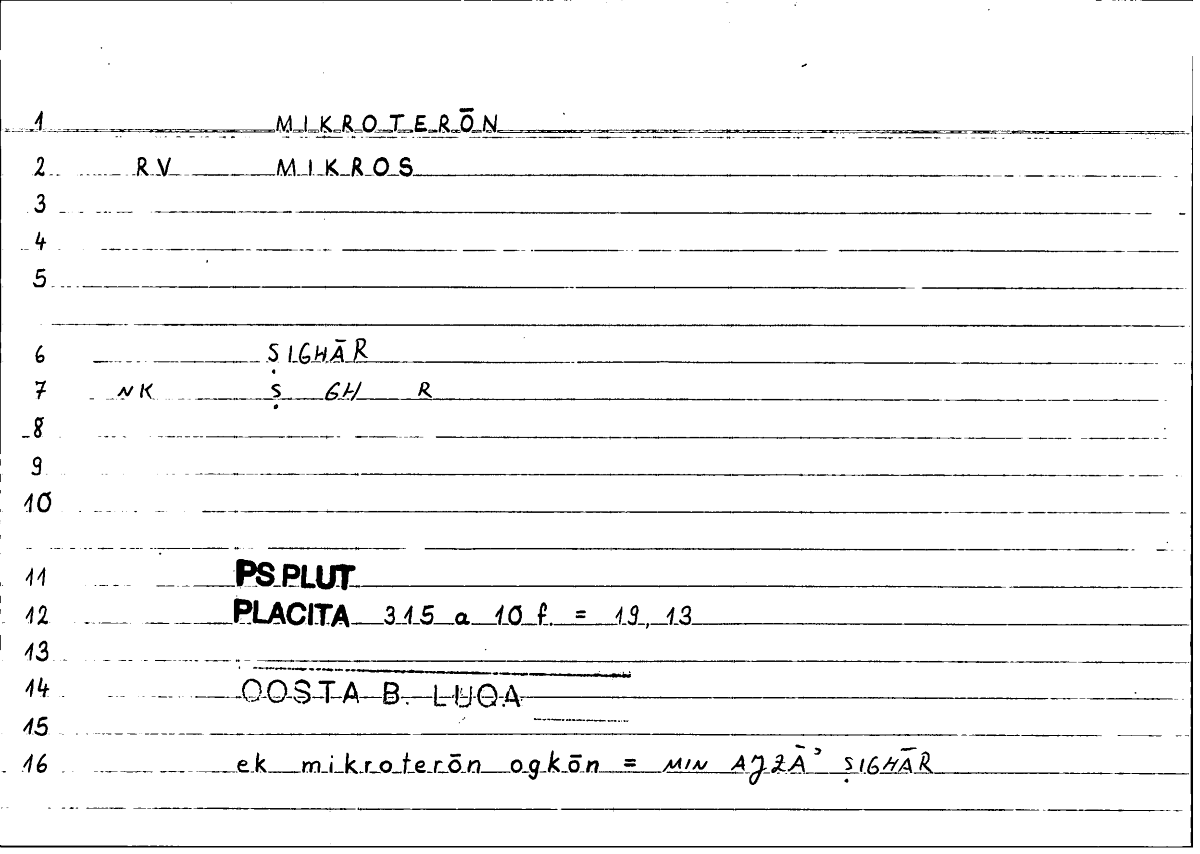 1 MIKROTERŌN
2 RV MIKROS
3
4
5
6 ṢIGHĀR
7 NK Ṣ GH R
8
9
10
11 PS PLUT
12 PLACITA 315 a 10 f. = 19, 13
13
14 QOSTA B. LUQA
15
16 ek mikroterōn ogkōn = MIN AJZĀʾ ṢIGHĀR